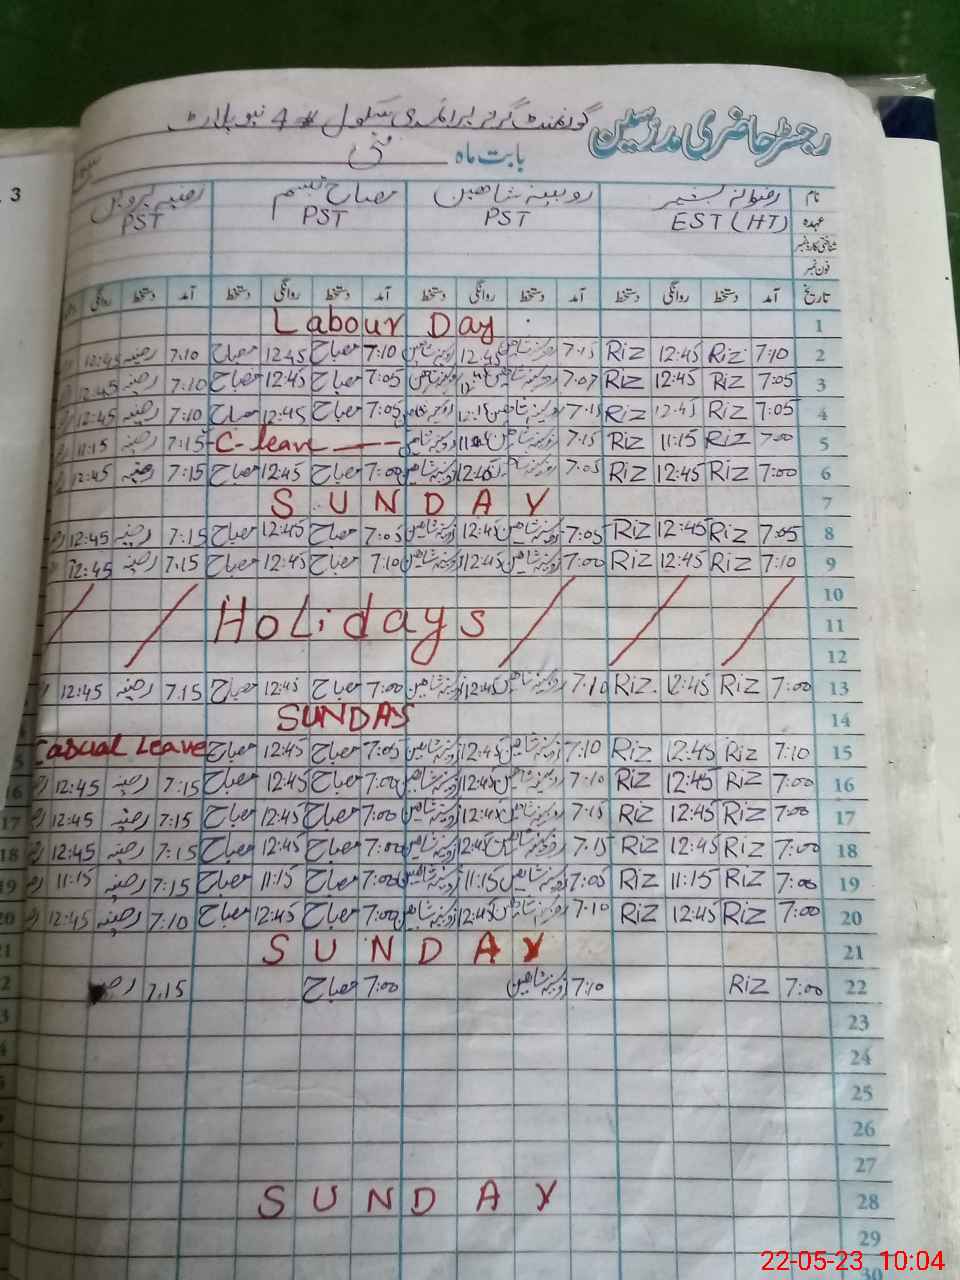 رجسٹر حاضری مدرسین گورنمنٹ گرلز پرائمری سکول # 4 نیو پلاٹ
بابت ماہ مئی
نام رضوانہ روبینہ شاھین مصباح تبسم رضیہ پروین
عہدہ EST (HT) PST PST PST
شناختی کارڈ نمبر
فون نمبر
تاریخ آمد دستخط روانگی دستخط آمد دستخط روانگی دستخط آمد دستخط روانگی دستخط آمد دستخط روانگی
1 Labour Day
2 7:10 Riz 12:45 Riz 7:15 روبینہ شاھین 12:45 روبینہ شاھین 7:10 مصباح 12:45 مصباح 7:10 رضیہ 12:45
3 7:05 Riz 12:45 Riz 7:07 روبینہ شاھین روبینہ شاھین 7:05 مصباح 12:45 مصباح 7:10 رضیہ 12:45
4 7:05 Riz 12:45 Riz 7:15 روبینہ شاھین روبینہ شاھین 7:05 مصباح 12:45 مصباح 7:10 رضیہ 12:45
5 7:00 Riz 11:15 Riz 7:15 روبینہ شاھین روبینہ شاھین C-leave 7:15 رضیہ 11:15
6 7:00 Riz 12:45 Riz 7:05 روبینہ شاھین 12:45 روبینہ شاھین 7:00 مصباح 12:45 مصباح 7:15 رضیہ 12:45
7 SUNDAY
8 7:05 Riz 12:45 Riz 7:05 روبینہ شاھین 12:45 روبینہ شاھین 7:05 مصباح 12:45 مصباح 7:15 رضیہ 12:45
9 7:10 Riz 12:45 Riz 7:00 روبینہ شاھین 12:45 روبینہ شاھین 7:10 مصباح 12:45 مصباح 7:15 رضیہ 12:45
10
11 Holidays
12
13 7:00 Riz 12:45 Riz. 7:10 روبینہ شاھین 12:45 روبینہ شاھین 7:00 مصباح 12:45 مصباح 7:15 رضیہ 12:45
14 SUNDAY
15 7:10 Riz 12:45 Riz 7:10 روبینہ شاھین 12:45 روبینہ شاھین 7:05 مصباح 12:45 مصباح Casual Leave
16 7:00 Riz 12:45 Riz 7:10 روبینہ شاھین 12:45 روبینہ شاھین 7:00 مصباح 12:45 مصباح 7:15 رضیہ 12:45
17 7:00 Riz 12:45 Riz 7:15 روبینہ شاھین 12:45 روبینہ شاھین 7:00 مصباح 12:45 مصباح 7:15 رضیہ 12:45
18 7:00 Riz 12:45 Riz 7:15 روبینہ شاھین 12:45 روبینہ شاھین 7:00 مصباح 12:45 مصباح 7:15 رضیہ 12:45
19 7:00 Riz 11:15 Riz 7:05 روبینہ شاھین 11:15 روبینہ شاھین 7:00 مصباح 11:15 مصباح 7:15 رضیہ 11:15
20 7:00 Riz 12:45 Riz 7:10 روبینہ شاھین 12:45 روبینہ شاھین 7:00 مصباح 12:45 مصباح 7:10 رضیہ 12:45
21 SUNDAY
22 7:00 Riz 7:10 روبینہ شاھین 7:00 مصباح 7.15
23
24
25
26
27
28 SUNDAY
29
30
22-05-23 10:04